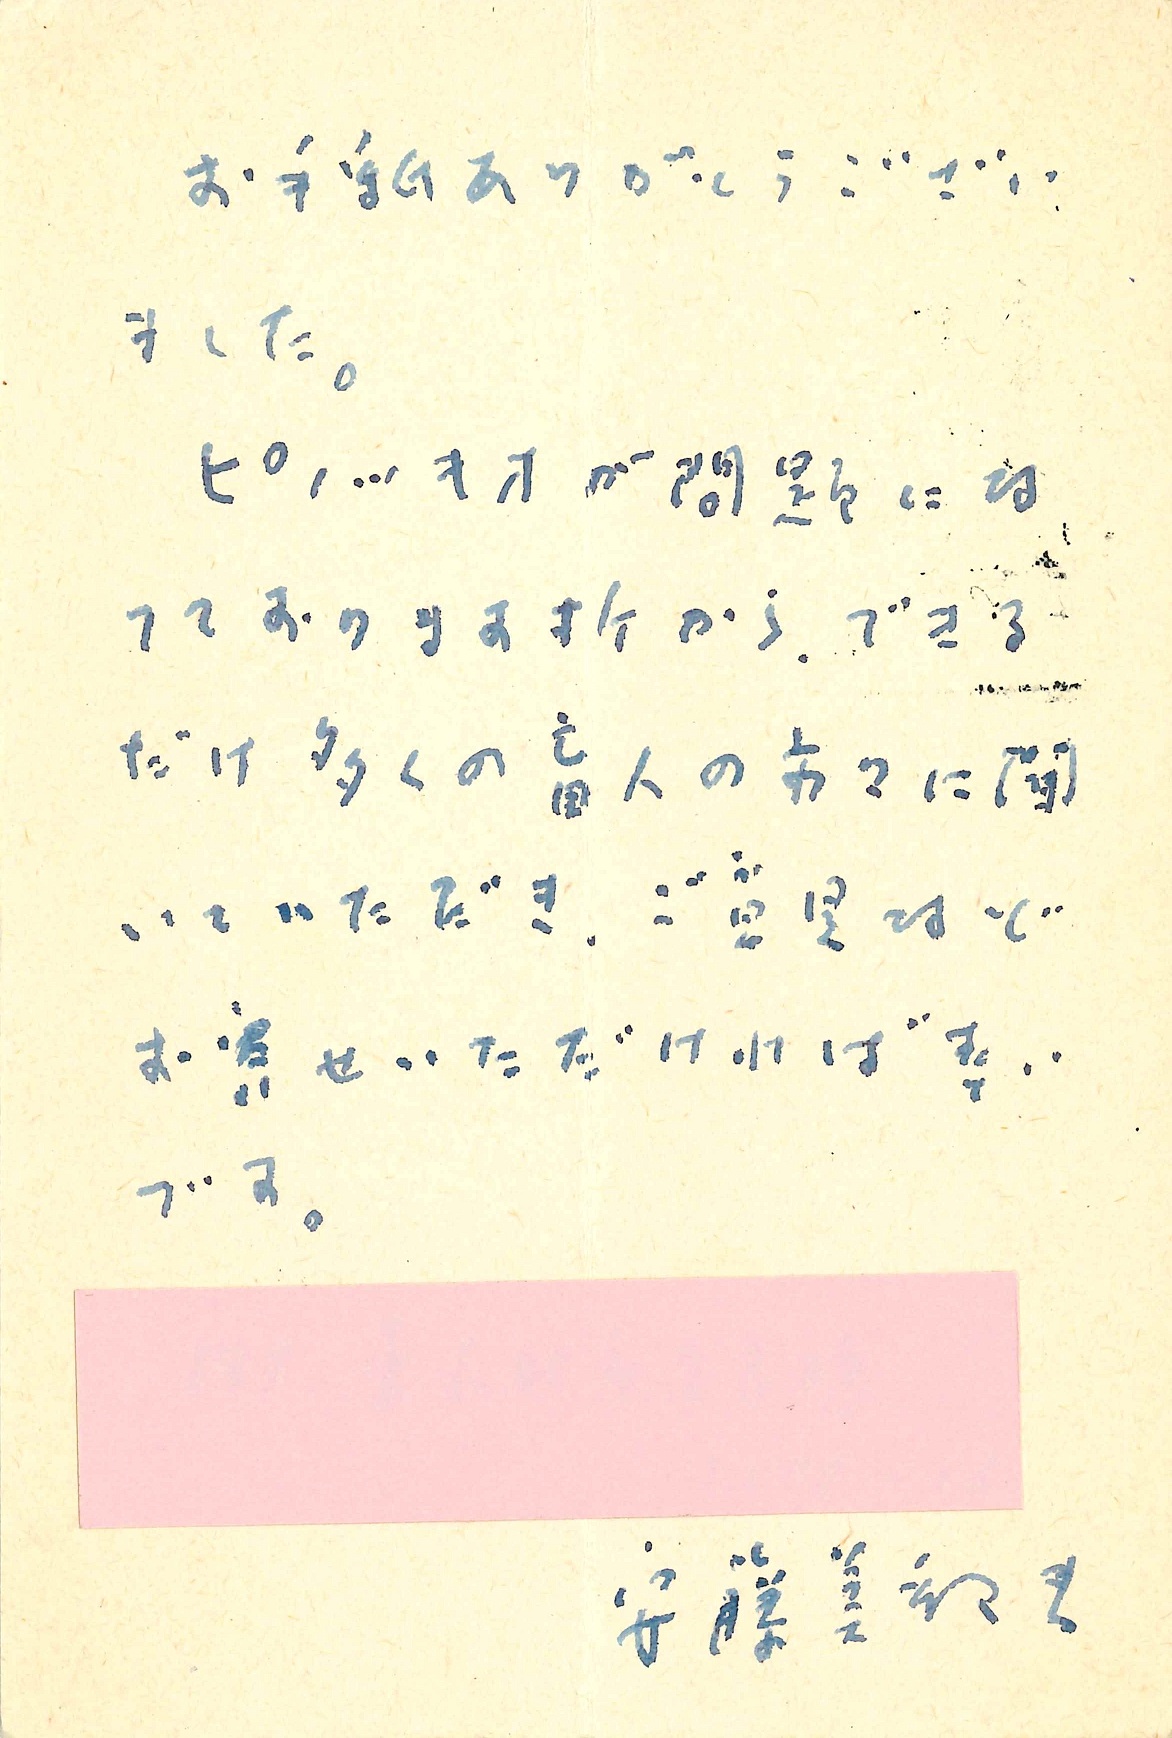 お手紙ありがとうござい
ました。
ピノッキオが問題にな
っておりますから、できる
だけ多くの盲人の方々に聞
いていただき、ご意見など
お寄せいただければ幸い
です。
安藤美紀夫